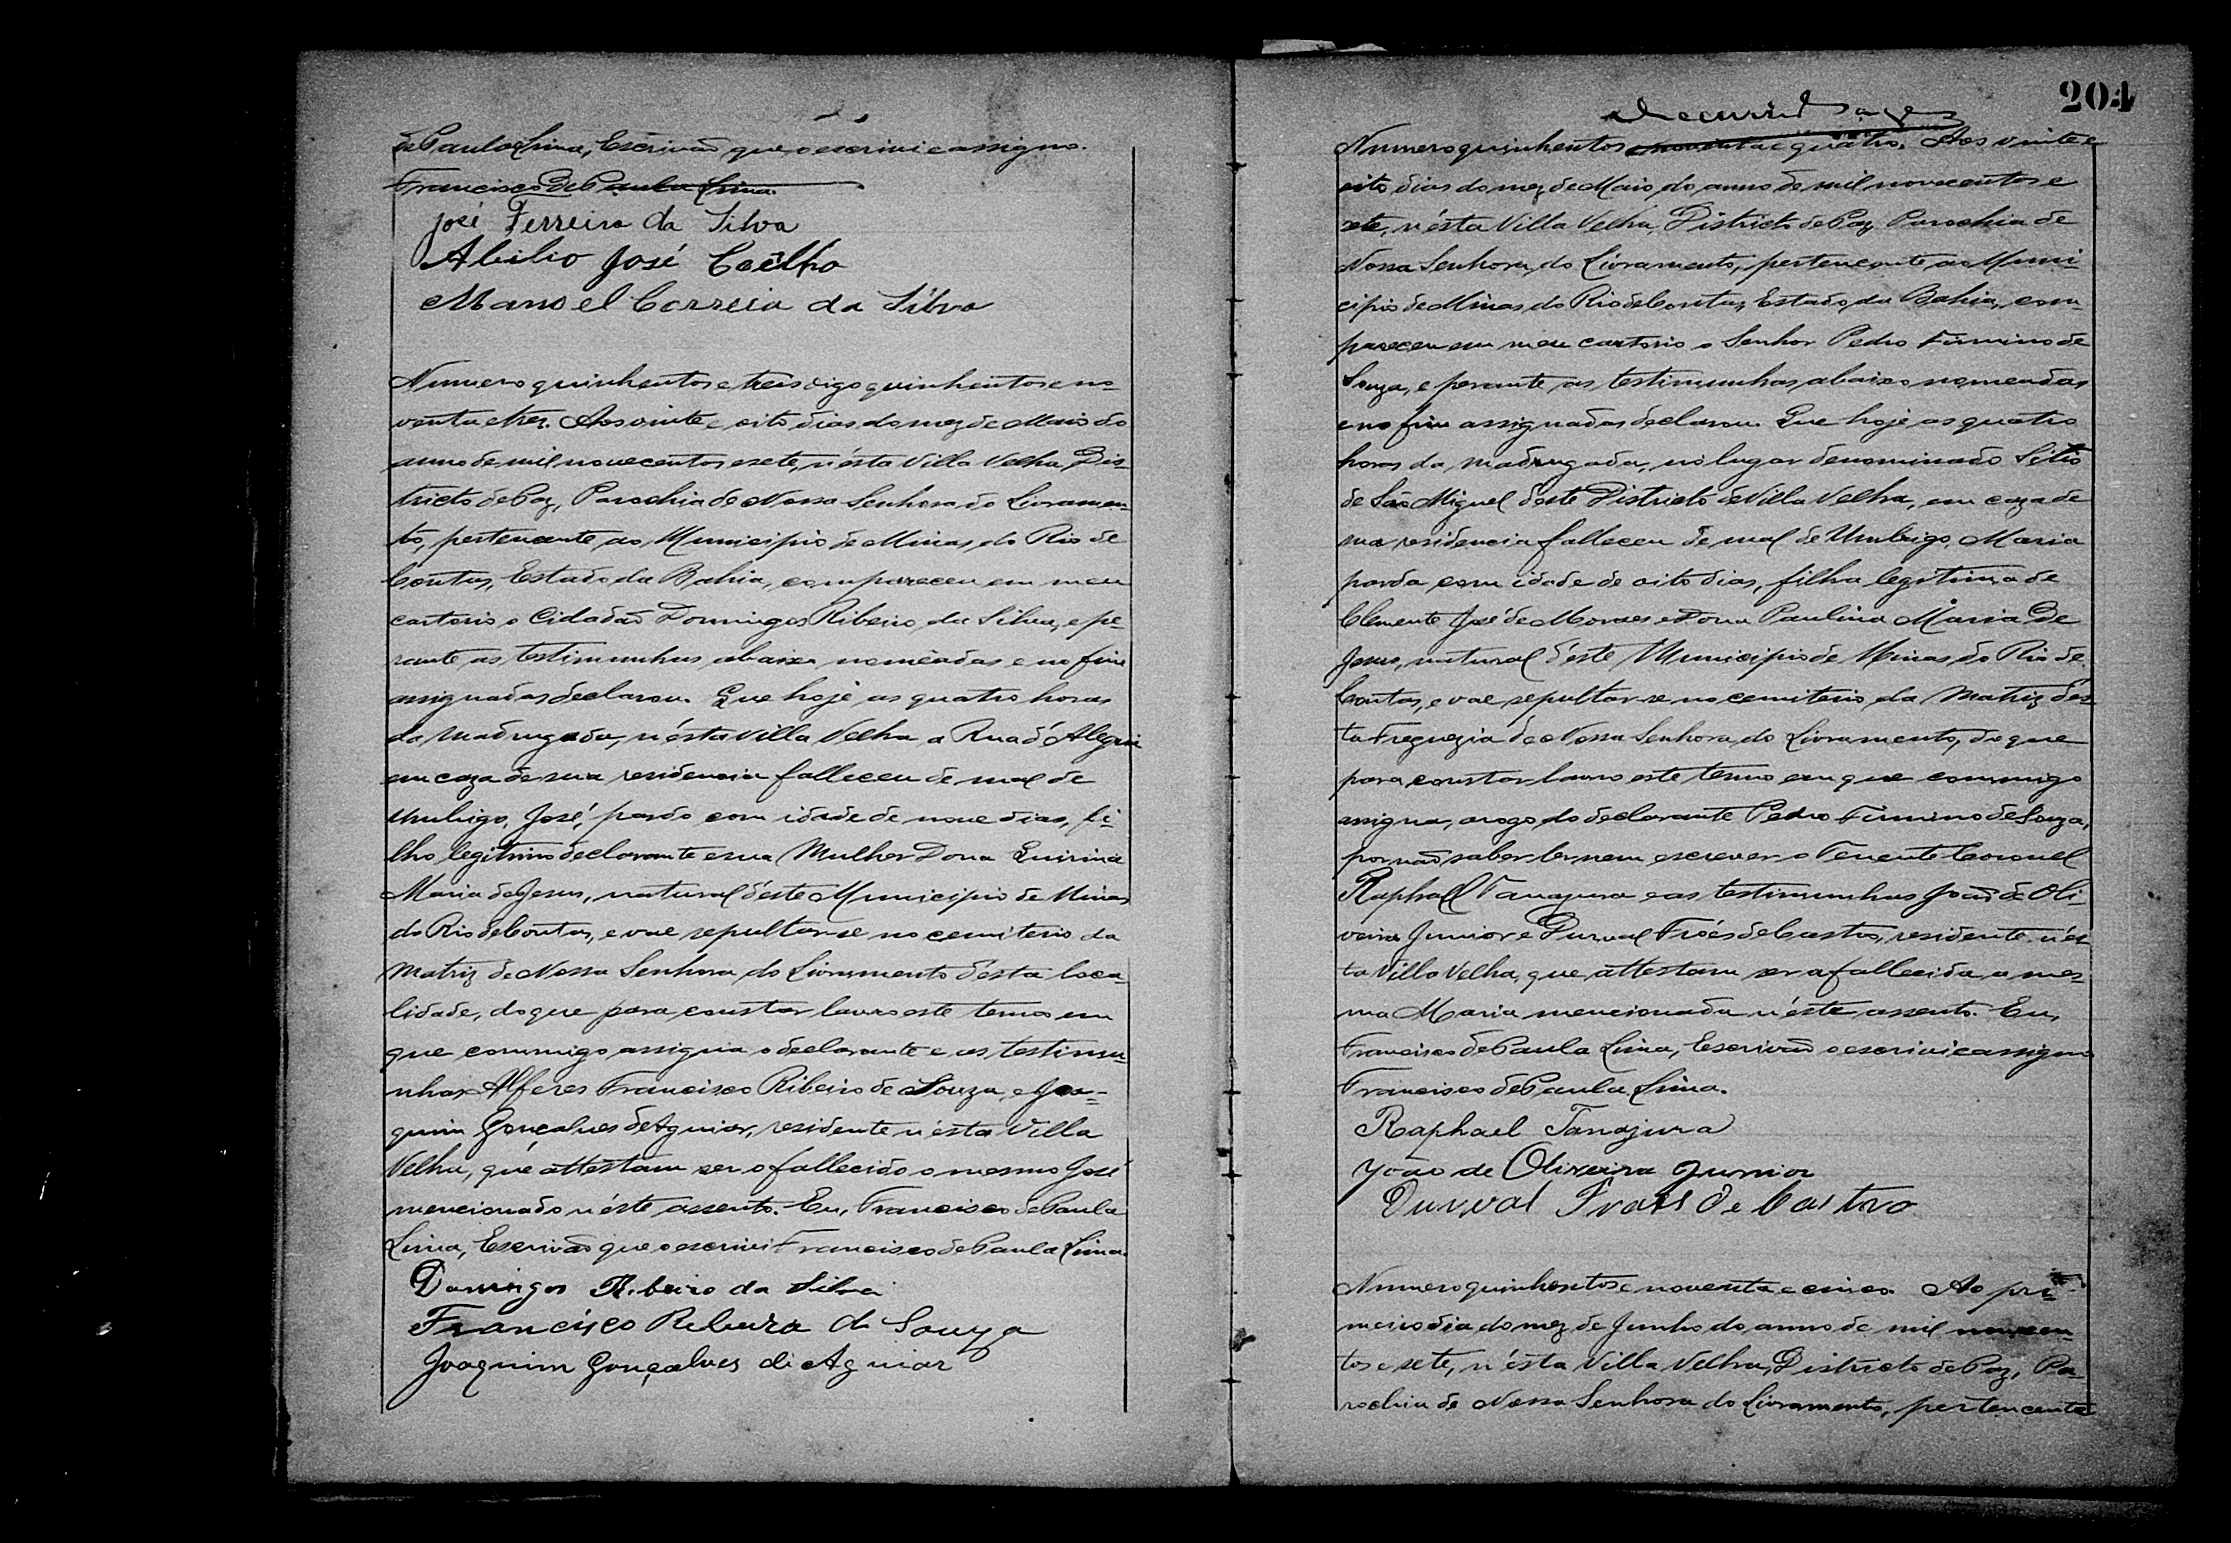 de Paula Lima, Escrivão que o escrivi e assigno.
Francisco de Paula Lima.
José Ferreira da Silva
Abilio José Coêlho
Manoel Correia da Silva
Numero quinhentos e treis digo quinhentos e no-
venta e tres. Aos vinte e oito dias do mez de Maio do
anno de mil novecentos e sete, n'ésta Villa Velha, Dis-
tricto de Paz, Parochia de Nossa Senhora do Livramen-
to, pertencente ao Municipio de Minas do Rio de
Contas, Estado da Bahia, compareceu em meu
cartorio o Cidadão Domingos Ribeiro da Silva, e pe-
rante as testimunhas abaixo nomeadas e no fim
assignadas declarou. Que hoje as quatro horas
da madrugada, n'ésta Villa Velha a Rua d'Alegria
em caza de sua residencia falleceu de mal de
Umbigo, José, pardo com idade de nove dias, fi-
lho legitimo declarante e sua Mulher Dona Quirina
Maria de Jesus, natural d'éste Municipio de Minas
do Rio de Contas, e vae sepultar-se no cemiterio da
Matriz de Nossa Senhora do Livramento d'ésta loca-
lidade, do que para constar lavro este termo em
que commigo assigna o declarante e as testimu-
nhas Alferes Francisco Ribeiro de Souza, e Joa-
quim Gonçalves de Aguiar, residente n'ésta Villa
Velha, que attestam ser o fallecido o mesmo José
mencionado n'éste assento. Eu, Francisco de Paula
Lima, Escrivão que o escrivi Francisco de Paula Lima.
Domingos Ribeiro da Silva
Francisco Ribeiro de Souza
Joaquim Gonçalves de Aguiar
204
Numero quinhentos e noventa e quatro. Aos vinte e
oito dias do mez de Maio do anno de mil novecentos e
sete, n'ésta Villa Velha, Districto de Paz, Parochia de
Nossa Senhora do Livramento, pertencente ao Muni-
cipio de Minas do Rio de Contas, Estado da Bahia, com-
pareceu em meu cartorio o Senhor Pedro Firmino de
Souza, e perante as testimunhas abaixo nomeadas
e no fim assignadas declarou. Que hoje as quatro
horas da madrugada, no lugar denominado Sitio
de São Miguel d'este Districto de Villa Velha, em caza de
sua residencia falleceu de mal de Umbigo, Maria
parda com idade de oito dias, filha legitima de
Clemente José de Moraes e Dona Paulina Maria de
Jesus, natural d'éste Municipio de Minas do Rio de
Contas, e vae sepultar-se no cemiterio da Matriz d'és-
ta Freguezia de Nossa Senhora do Livramento, do que
para constar lavro este termo em que commigo
assigna, a rogo do declarante Pedro Firmino de Souza,
por não saber ler nem escrever o Tenente Coronel
Raphael Tanajura e as testimunhas João de Oli-
veira Junior e Durval Fróes de Castro, residente n'és-
ta Villa Velha, que attestam ser a fallecida a mes-
ma Maria mencionada n'éste assento. Eu,
Francisco de Paula Lima, Escrivão o escrivi e assigno
Francisco de Paula Lima.
Raphael Tanajura
João de Oliveira Junior
Durval Fróes de Castro
Numero quinhentos e noventa e cinco. Ao pri-
meiro dia do mez de Junho do anno de mil novecen-
tos e sete, n'ésta Villa Velha, Districto de Paz, Pa-
rochia de Nossa Senhora do Livramento, pertencente